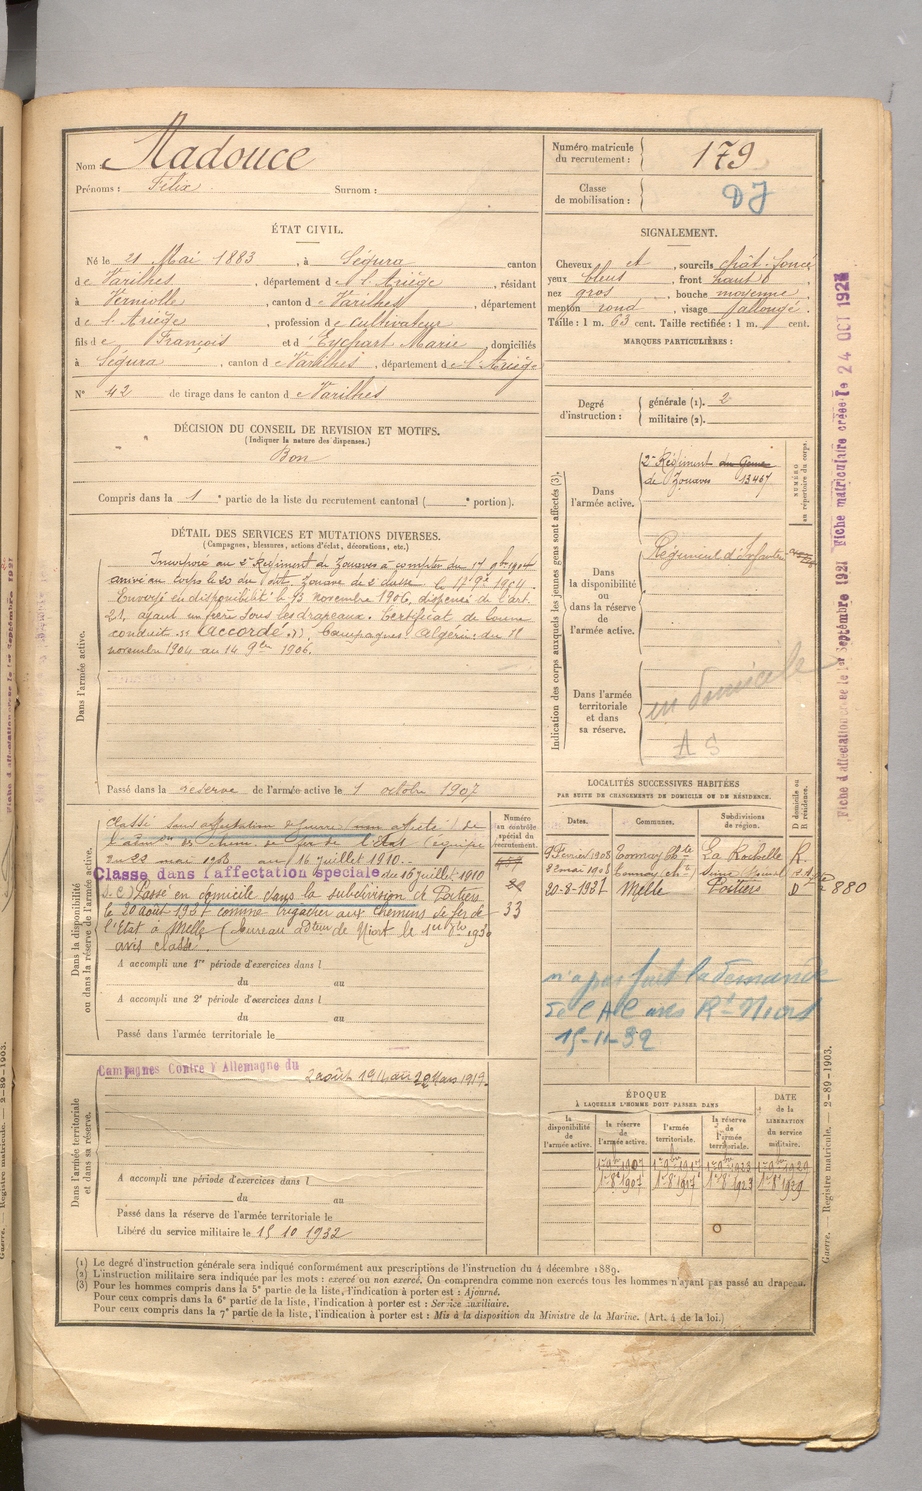 Nom : Madouce
Prénoms : Félix Surnom :
Numéro matricule du recrutement : 179
Classe de mobilisation :
ÉTAT CIVIL.
Né le 21 Mai 1883, à Ségura canton
de Varilhes, département de l'Ariège, résidant
à Verniolle, canton de Varilhes, département
de l'Ariège, profession de cultivateur
fils de François et d'Eychart Marie, domiciliés
à Ségura, canton de Varilhes, département de l'Ariège
N° 42 de tirage dans le canton de Varilhes
SIGNALEMENT.
Cheveux et, sourcils chât-foncé
yeux bleus, front haut
nez gros, bouche moyenne
menton rond, visage allongé
Taille : 1 m. 63 cent. Taille rectifiée : 1 m. cent.
MARQUES PARTICULIÈRES :
Degré d'instruction : générale (1). 2
militaire (2).
DÉCISION DU CONSEIL DE REVISION ET MOTIFS.
(Indiquer la nature des dispenses.)
Bon
Compris dans la 1e partie de la liste du recrutement cantonal ( e portion).
DÉTAIL DES SERVICES ET MUTATIONS DIVERSES.
(Campagnes, blessures, actions d'éclat, décorations, etc.)
Dans l'armée active.
Incorporé au 2e Régiment de Zouaves à compter du 17 9bre 1904
arrivé au corps le 20 du dit. Zouave de 2e classe le
Envoyé en disponibilité le 13 novembre 1906, dispensé de l'art.
21, ayant un frère sous les drapeaux. Certificat de bonne
conduite « accordé ». Campagnes : Algérie : du 18
novembre 1904 au 14 9bre 1906.
Passé dans la réserve de l'armée active le 1 octobre 1907
Indication des corps auxquels les jeunes gens sont affectés (3).
Dans l'armée active.
2e Régiment du Génie
de Zouaves 13467
NUMÉRO au répertoire du corps.
Dans la disponibilité ou dans la réserve de l'armée active.
Régiment d'Infanterie
Dans l'armée territoriale et dans sa réserve.
en domicile
A S
Dans la disponibilité ou dans la réserve de l'armée active.
Classé sans affectation
de chem. de fer de l'Etat
du 22 mai 1908 au 16 juillet 1910.-
Classe dans l'affectation speciale du 16 juillet 1910
Passé en domicile dans la subdivision de Poitiers
le 20 août 1931 comme brigadier aux chemins de fer de
l'Etat à Melle (bureau de Niort le 1er
avis classé.
Numéro au contrôle spécial du recrutement.
33
A accompli une 1re période d'exercices dans l
du au
A accompli une 2e période d'exercices dans l
du au
Passé dans l'armée territoriale le
LOCALITÉS SUCCESSIVES HABITÉES
PAR SUITE DE CHANGEMENTS DE DOMICILE OU DE RÉSIDENCE.
Dates. Communes. Subdivisions de région. D domicile ou R résidence.
9 Février 1908 Tonnay Chte La Rochelle R.
22 mai 1908 Tonnay Ch
20-8-1931 Melle Poitiers D 880
n'a pas fait la demande
de C A C
15-11-32
Dans l'armée territoriale et dans sa réserve.
Campagnes Contre l'Allemagne du
2 août 1914 au 20 Mars 1919.
A accompli une période d'exercices dans l
du au
Passé dans la réserve de l'armée territoriale le
Libéré du service militaire le 15 10 1932
ÉPOQUE
À LAQUELLE L'HOMME DOIT PASSER DANS
la disponibilité de l'armée active.
la réserve de l'armée active.
l'armée territoriale.
la réserve de l'armée territoriale.
DATE de la LIBÉRATION du service militaire.
1er 9bre 1907 1er 9bre 1917 1er 9bre 1923 1er 9bre 1929
1er 8 1907 1er 8 1917 1er 8 1923 1er 8 1929
(1) Le degré d'instruction générale sera indiqué conformément aux prescriptions de l'instruction du 4 décembre 1889.
(2) L'instruction militaire sera indiquée par les mots : exercé ou non exercé. On comprendra comme non exercés tous les hommes n'ayant pas passé au drapeau.
(3) Pour les hommes compris dans la 5e partie de la liste, l'indication à porter est : Ajourné.
Pour ceux compris dans la 6e partie de la liste, l'indication à porter est : Service auxiliaire.
Pour ceux compris dans la 7e partie de la liste, l'indication à porter est : Mis à la disposition du Ministre de la Marine. (Art. 4 de la loi.)
Fiche d'affectation créée le 1er Septembre 1921 Fiche matriculaire créée le 24 OCT 1924
Guerre. — Registre matricule. — 2-89-1903.